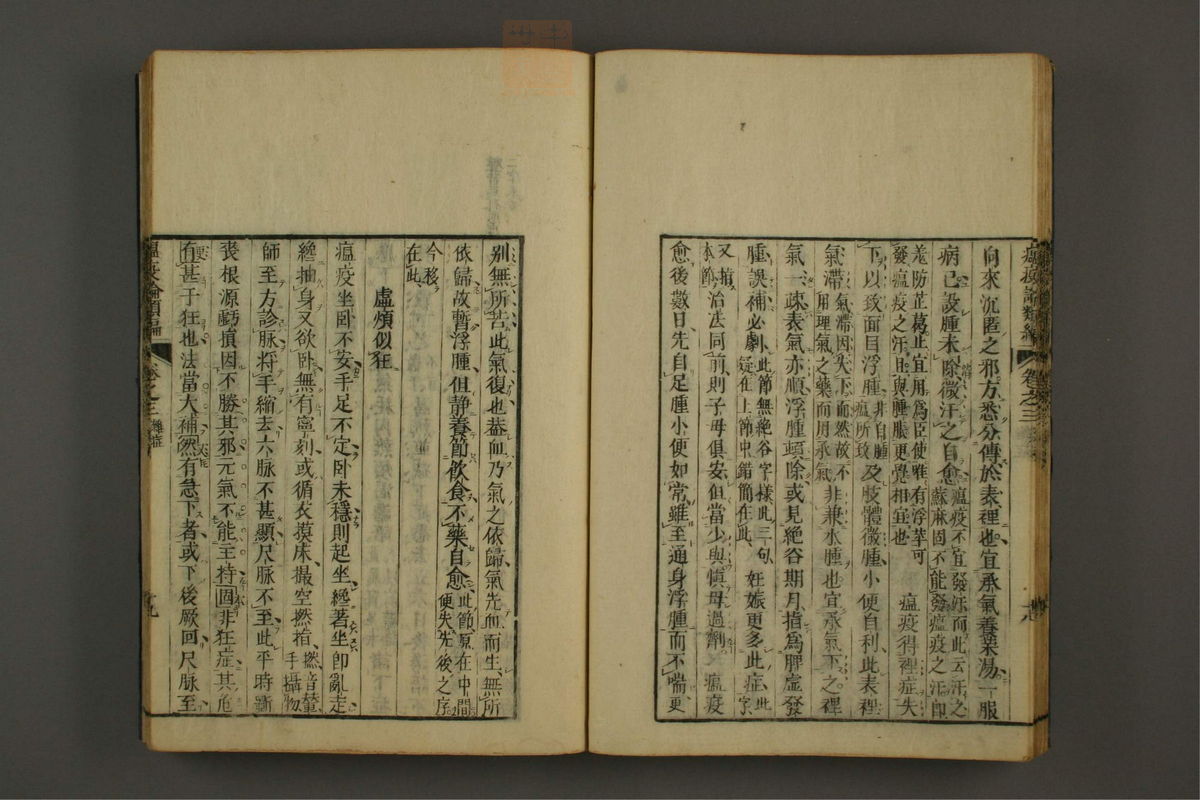 向來沉匿之邪方悉分傳於表裡也宜承氣養榮湯一服
病已設腫未除微汗之自愈
瘟疫不宜發汗而此云汗之
蘇麻固不能發瘟疫之汗卽
羗防芷葛止宜用爲臣使唯有浮萍可
發瘟疫之汗且與腫脹更覺相宜也
瘟疫得裡症失
下以致面目浮腫
非自腫
瘟所致
及肢體微腫小便自利此表裡
氣滯
氣滯因失下而然故不
用理氣之藥而用承氣
非兼水腫也宜承氣下之裡
氣一疎表氣亦順浮腫頓除或見絶谷期月指爲脾虛發
腫誤補必劇
此節無絶谷字樣此三句
疑在上節中錯簡在此
妊娠更多此症
此
字
又摘
本節
治法同前則子母俱安但當少與愼母過劑
瘟疫
愈後數日先自足腫小便如常雖至通身浮腫而不喘更
瘟疫論類編
卷之三
别無所苦此氣復也蓋血乃氣之依歸氣先血而生無所
依歸故暫浮腫但静養節飲食不藥自愈
此節原在中間
便失先後之序
今移
在此
虛煩似狂
瘟疫坐卧不安手足不定卧未穩則起坐纔著坐卽亂走
纔抽身又欲卧無有寧刻或循衣摸床撮空撚指
撚音輦
手攝物
師至方診脉将手縮去六脉不甚顯尺脉不至此平時斲
喪根源虧損因不勝其邪元氣不能主持固非狂症其危
有甚于狂也法當大補然有急下者或下後厥回尺脉至
瘟疫論類編
卷之三
雜症